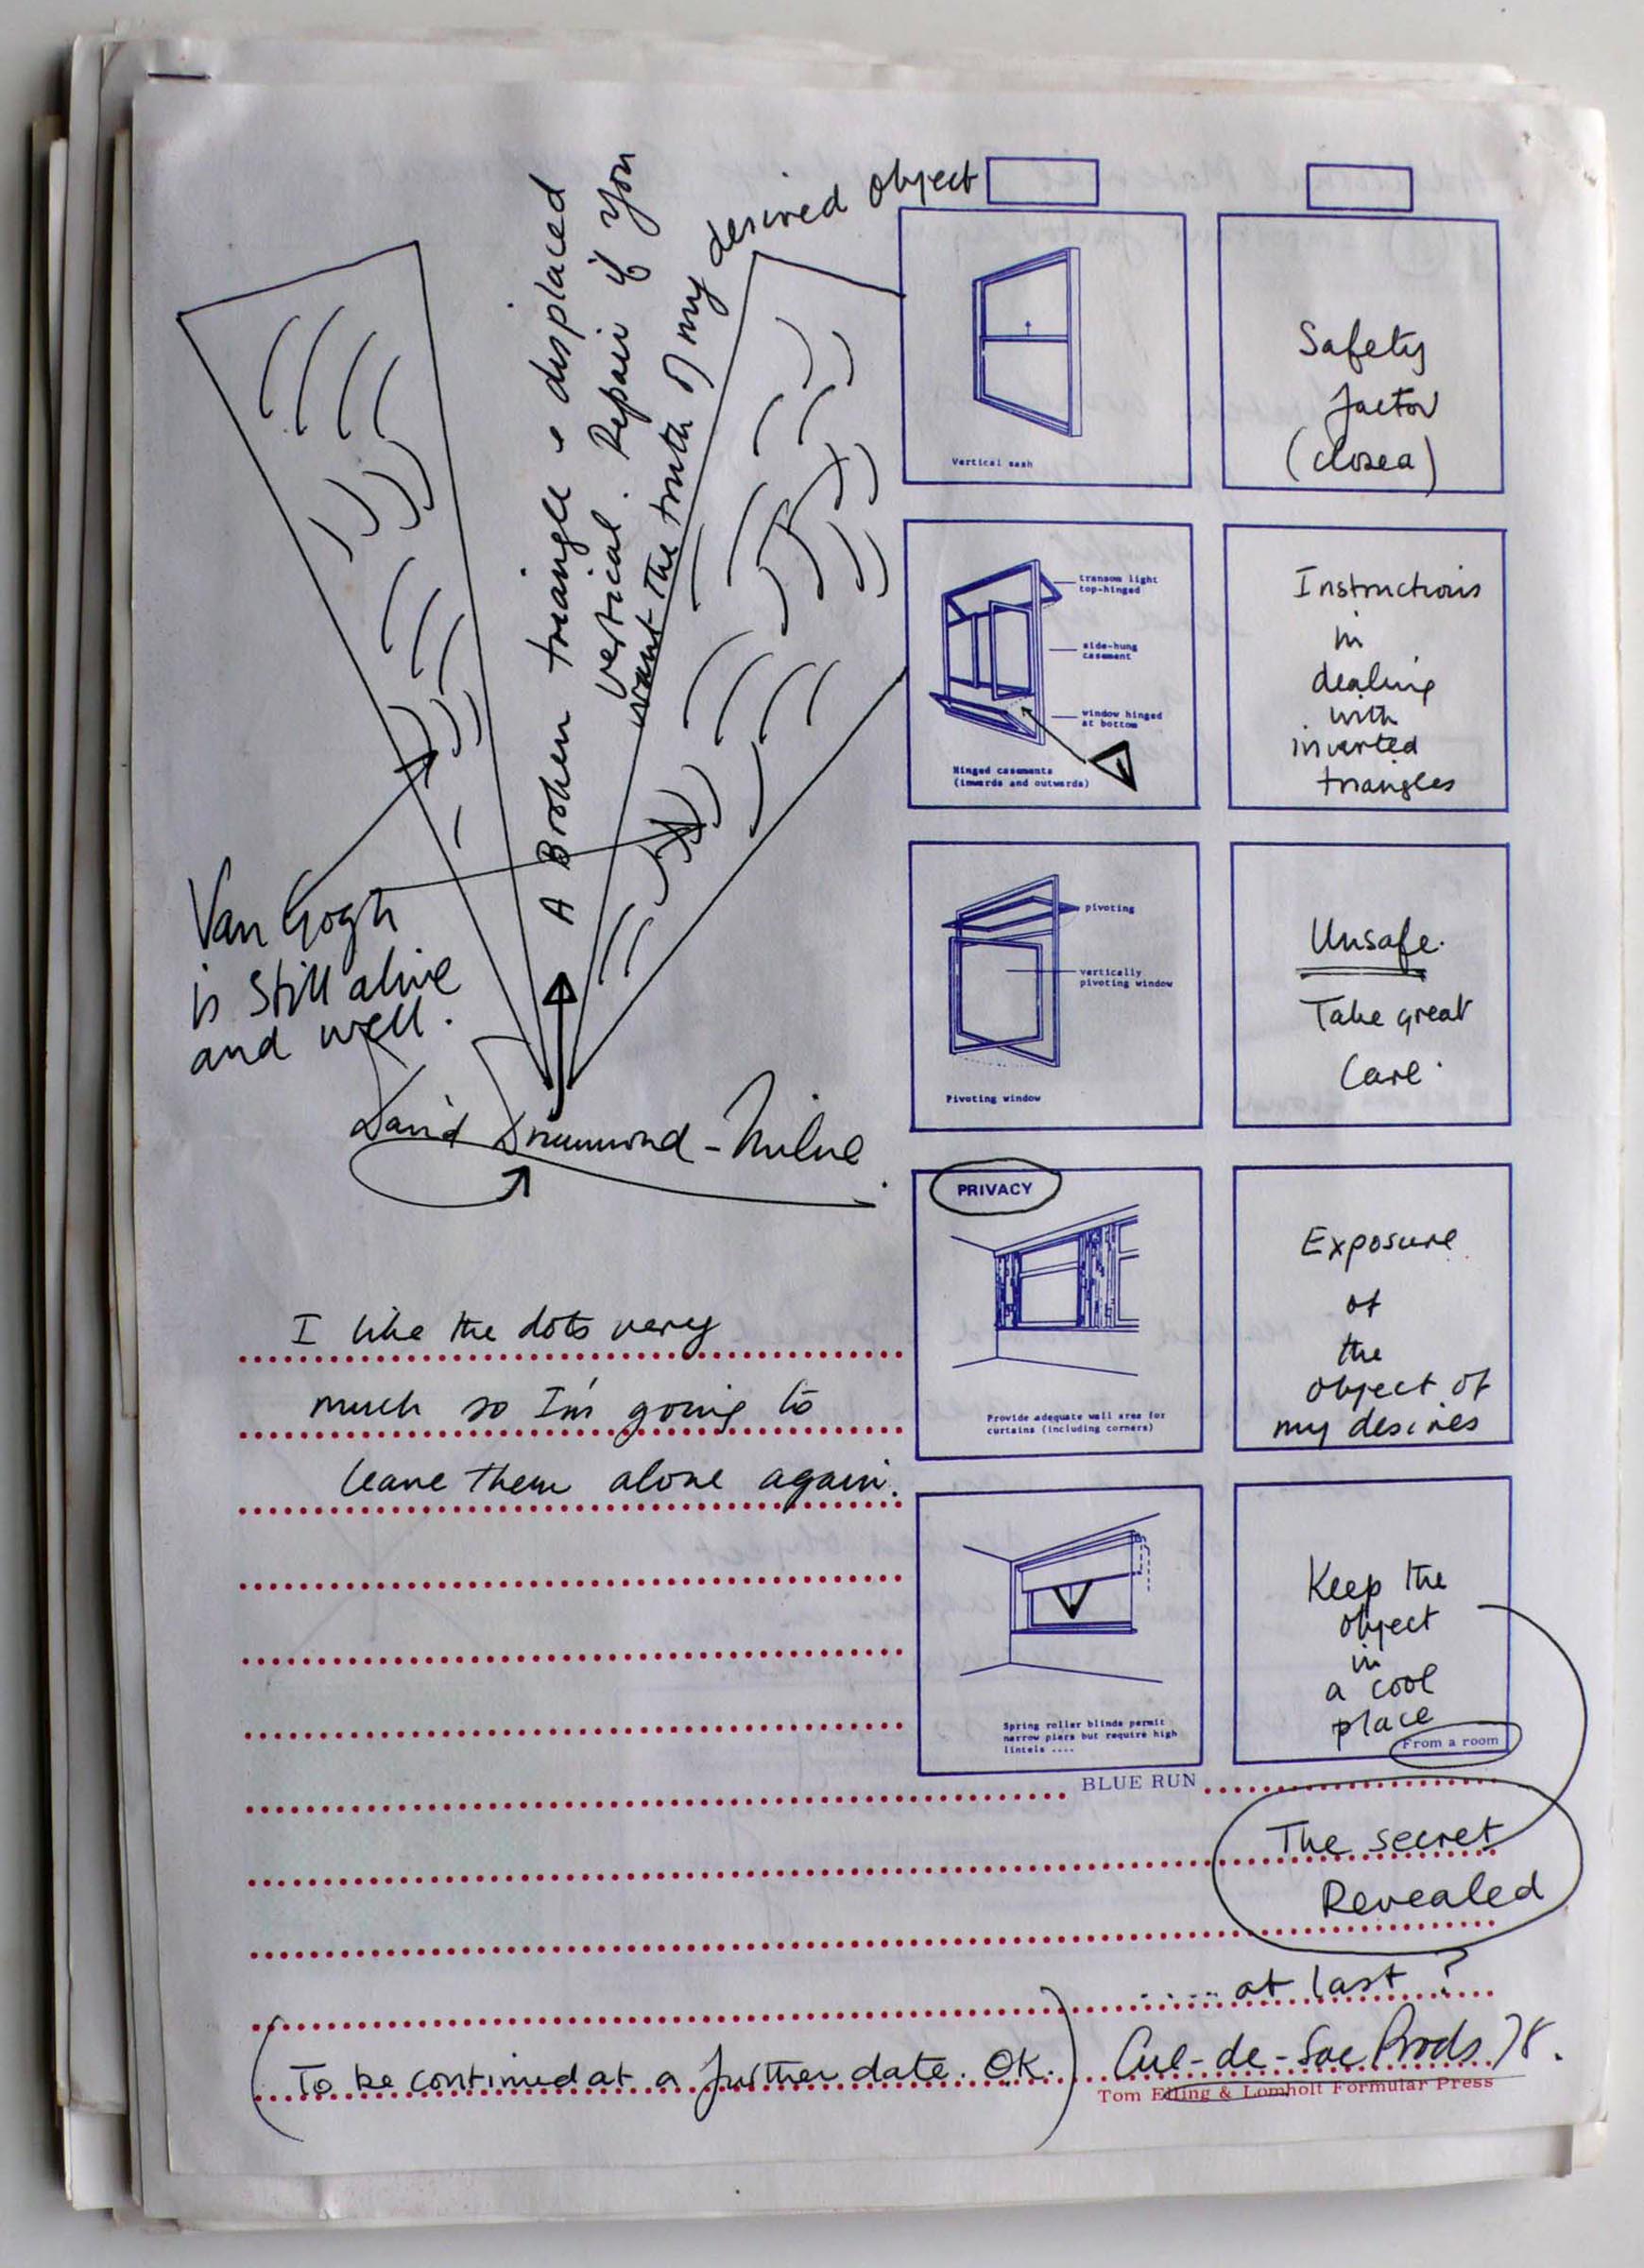 A Broken triangle & displaced
vertical. Repair if you
want the truth of my desired object
Van Gogh
is still alive
and well.
David Drummond-Milne
I like the dots very
much so I'm going to
leave them alone again.
Vertical sash
Safety
factor
(closed)
transom light
top-hinged
side-hung
casement
window hinged
at bottom
Hinged casements
(inwards and outwards)
Instructions
in
dealing
with
inverted
triangles
pivoting
vertically
pivoting window
Pivoting window
Unsafe.
Take great
Care.
PRIVACY
Provide adequate wall area for
curtains (including corners)
Exposure
of
the
object of
my desires
Spring roller blinds permit
narrow piers but require high
lintels ....
Keep the
object
in
a cool
place
From a room
BLUE RUN
The secret
Revealed
..... at last?
(To be continued at a further date. OK.)
Cul-de-Sac Prods 78.
Tom Elling & Lomholt Formular Press